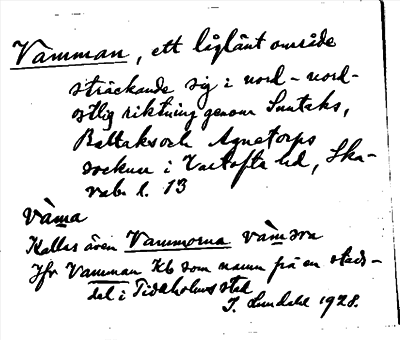 Vamman, ett låglänt område
sträckande sig i nord-nord-
ostlig riktning genom Suntaks,
Baltaks och Agnetorps
socknar i Vartofta hd, Ska-
rab. l. 13
vàma
Kallas även Vammorna
Jfr Vamman Kb som namn på en stads-
del i Tidaholms stad
J. Lundahl 1928.